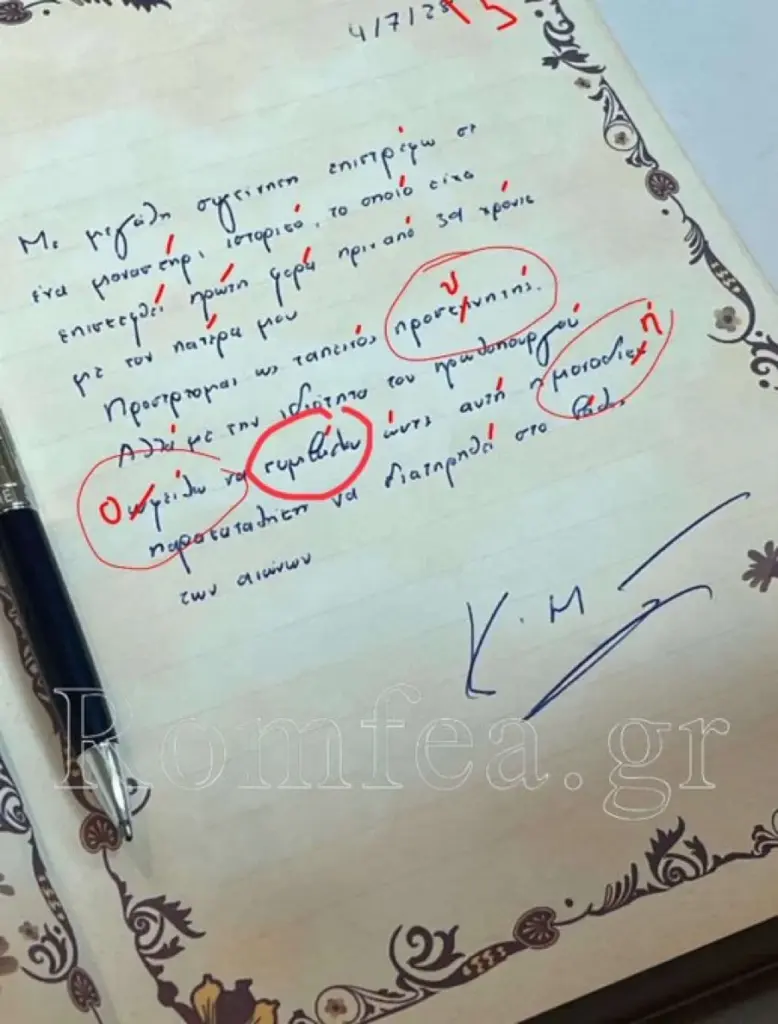 4/7/25
Με μεγάλη συγκίνηση επιστρέφω σε
ένα μοναστήρι ιστορικό, το οποίο είχα
επισκεφθεί πρώτη φορά πριν από 39 χρόνια
με τον πατέρα μου
Προσέρχομαι ως ταπεινός προσκηνητής.
Αλλά με την ιδιότητα του πρωθυπουργού
ωφείλω να συμβάλω ώστε αυτή η μοναδική
παρακαταθήκη να διατηρηθεί στο βάθος
των αιώνων
Κ. Μ
Romfea.gr